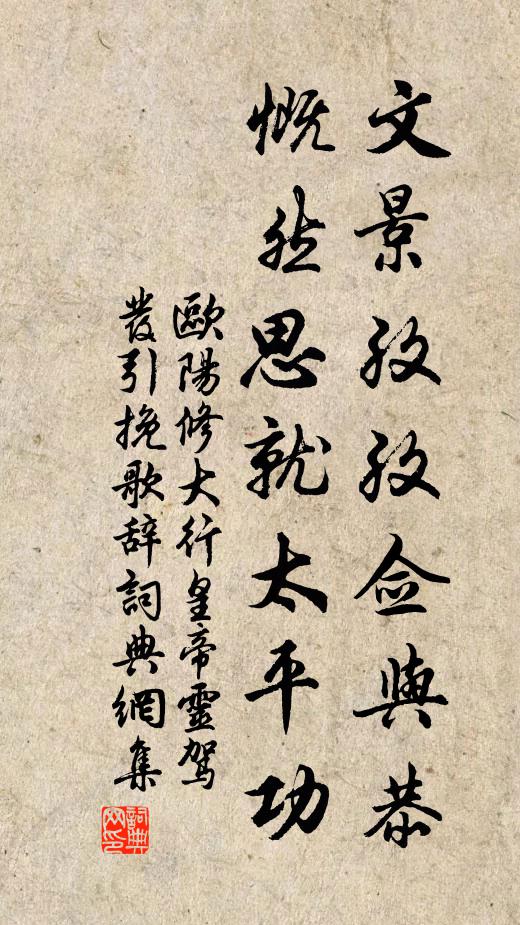 文景孜孜儉與恭
慨然思就太平功
歐陽修大行皇帝靈駕
發引挽歌辭詞典網集
詞典
网印